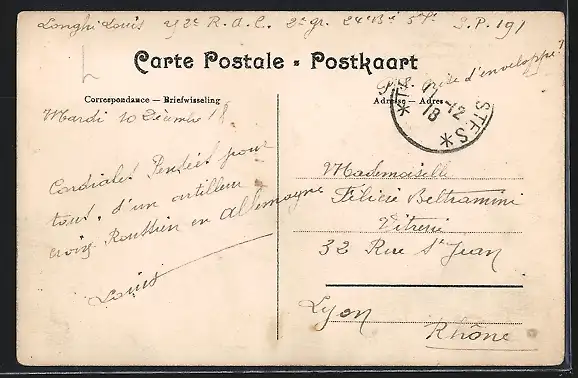 Longhi Louis 2e R.d.C. 2e gr. 24e Bie 5e Pce S.P. 191
Carte Postale - Postkaart
d'enveloppe?
Correspondance — Briefwisseling
Adresse — Adres
11-12
18
STES
Mardi 10 Décembre 18
Cordiales Pensées pour
tous, d'un artilleur
en Allemagne
Louis
Mademoiselle
Félicie Beltramini
Vitrerie
32 Rue St Jean
Lyon
Rhône